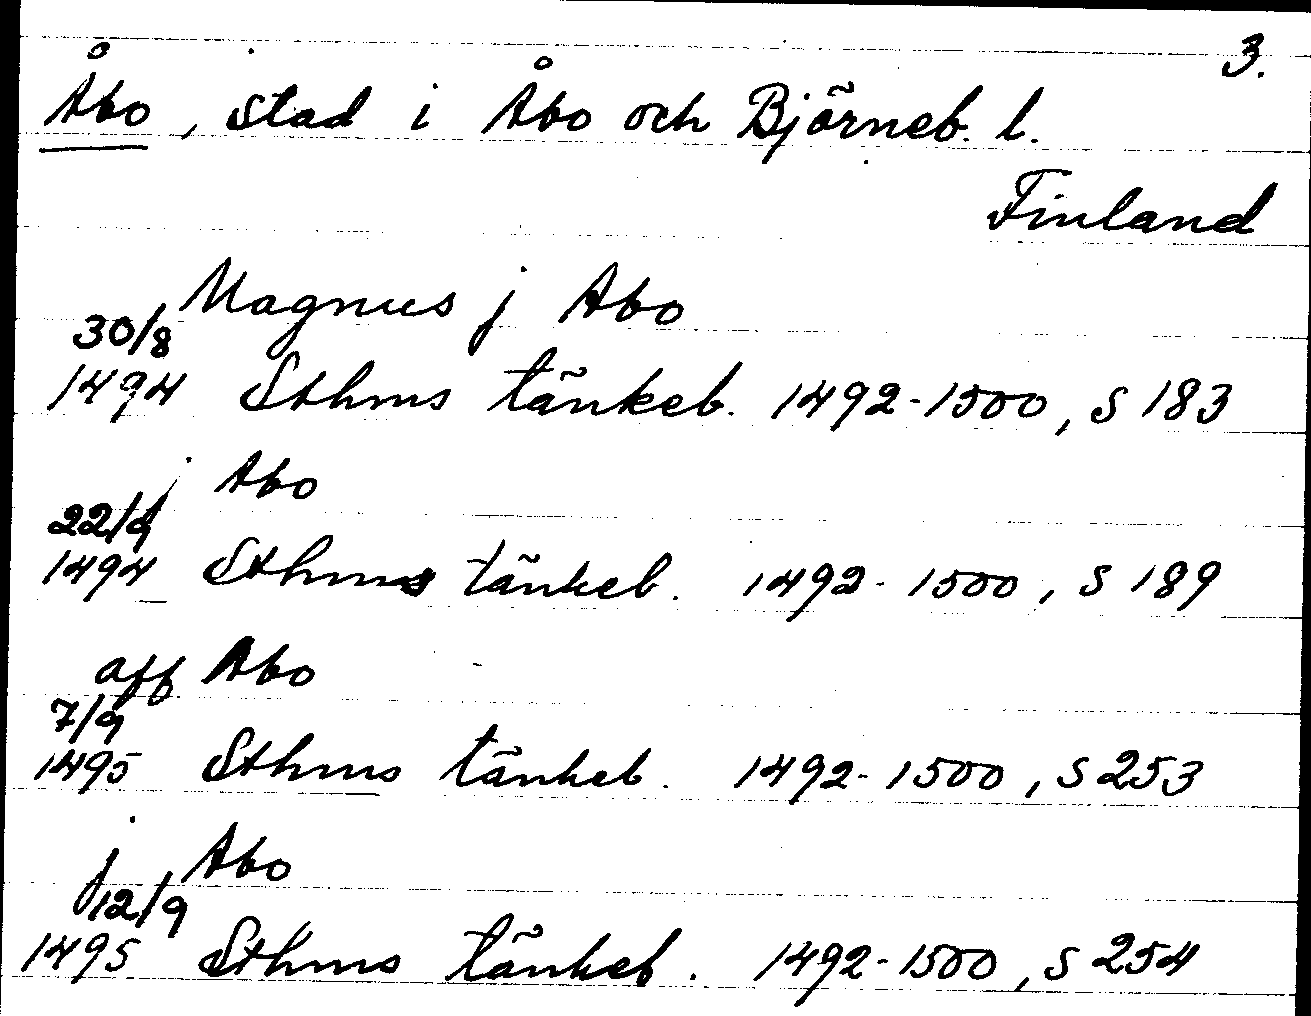 3.
Åbo, stad i Åbo och Björneb. l.
Finland
Magnus j Abo
30/8
1494 Sthms tänkeb. 1492-1500, s 183
j Abo
22/9
1494 Sthms tänkeb. 1492-1500, s 189
aff Abo
7/9
1495 Sthms tänkeb. 1492-1500, s 253
j Abo
12/9
1495 Sthms tänkeb. 1492-1500, s 254